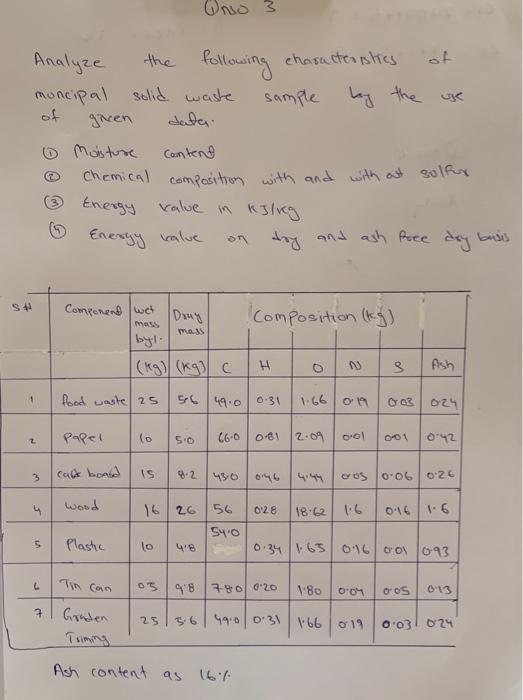 3
Analyze the following characteristics of
muncipal solid waste sample by the use
of given data.
① Moisture content
② Chemical composition with and with out sulfur
③ Energy value in KJ/kg
④ Energy value on dry and ash free dry basis
S# Component wet mass by%. Dry mass Composition (kg)
(kg) (kg) C H O N S Ash
1 food waste 25 5.6 49.0 0.31 1.66 0.19 0.03 0.24
2 Paper 10 5.0 66.0 0.81 2.09 0.01 0.01 0.42
3 card board 15 8.2 43.0 0.46 4.44 0.05 0.06 0.26
4 Wood 16 26 56 0.28 18.62 1.6 0.16 1.6
5 Plastic 10 4.8 54.0 0.34 1.65 0.16 0.01 0.93
6 Tin can 05 9.8 78.0 0.20 1.80 0.04 0.05 0.13
7 Graden Triming 25 5.6 49.0 0.31 1.66 0.19 0.03 0.24
Ash content as 16%